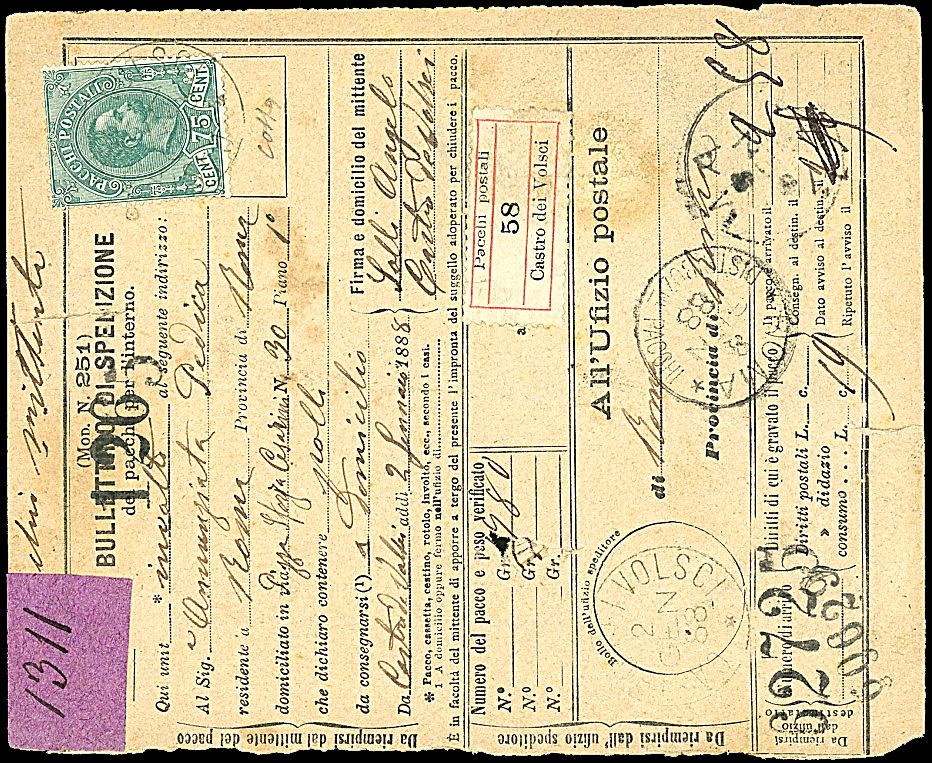 PACCHI POSTALI
CENT. 75 CENT.
(Mod. N. 251)
BULLETTINO DI SPEDIZIONE
dei pacchi per l'interno.
1263
1311
mittente
Qui unit * involto al seguente indirizzo:
Al Sig. Annunziata Pedica
residente a Roma Provincia di Roma
domiciliato in Piazza Sforza Cesarini N. 30 Piano 1°
che dichiaro contenere polli
da consegnarsi (1) a Domicilio
Da Castro dei Volsci addì 2 Gennaio 1888
Firma e domicilio del mittente
Lolli Angelo
Castro dei Volsci
* Pacco, cassetta, cestino, rotolo, involto, ecc., secondo i casi.
1 A domicilio oppure fermo nell'ufizio di
È in facoltà del mittente di apporre a tergo del presente l'impronta del suggello adoperato per chiudere i pacco.
Da riempirsi dal mittente del pacco
Numero del pacco e peso verificato
N.° Gr.
N.° Gr.
N.° Gr.
Pacchi postali
58
Castro dei Volsci
Da riempirsi dall' ufizio speditore
Bollo dell'ufizio speditore
VOLSCI
2 GEN 88
All'Ufizio postale
di Roma
Provincia di Roma
ROMA DISTRIBUZ PACCHI
88
85
Numero di arrivo
32725
Diritti di cui è gravato il pacco
Diritti postali L. c.
» didazio
consumo . . . L. c. 19
Il pacco è arrivato il
Consegn. al destin. il
Dato avviso al destin. il
Ripetuto l'avviso il
Da riempirsi
dall'ufizio
destinatario